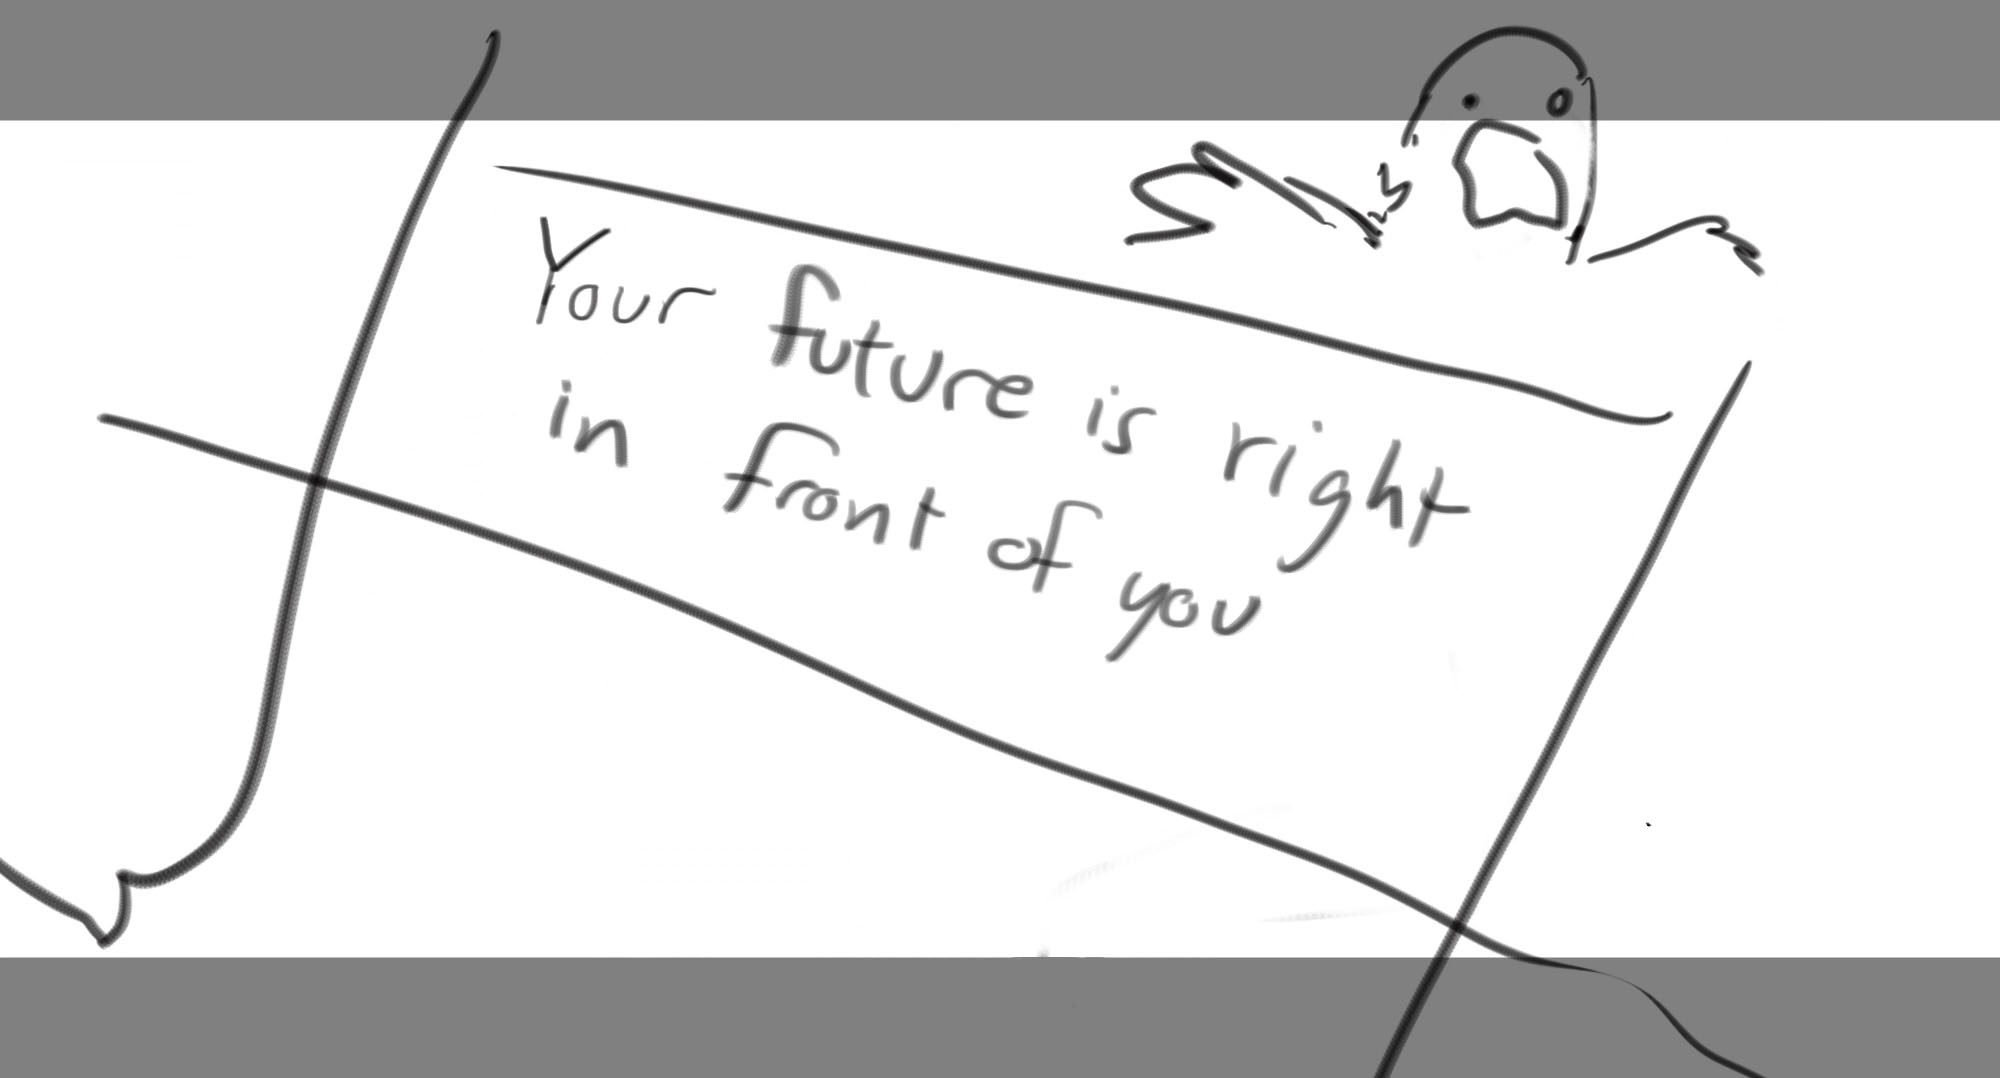 Your future is right
in front of you